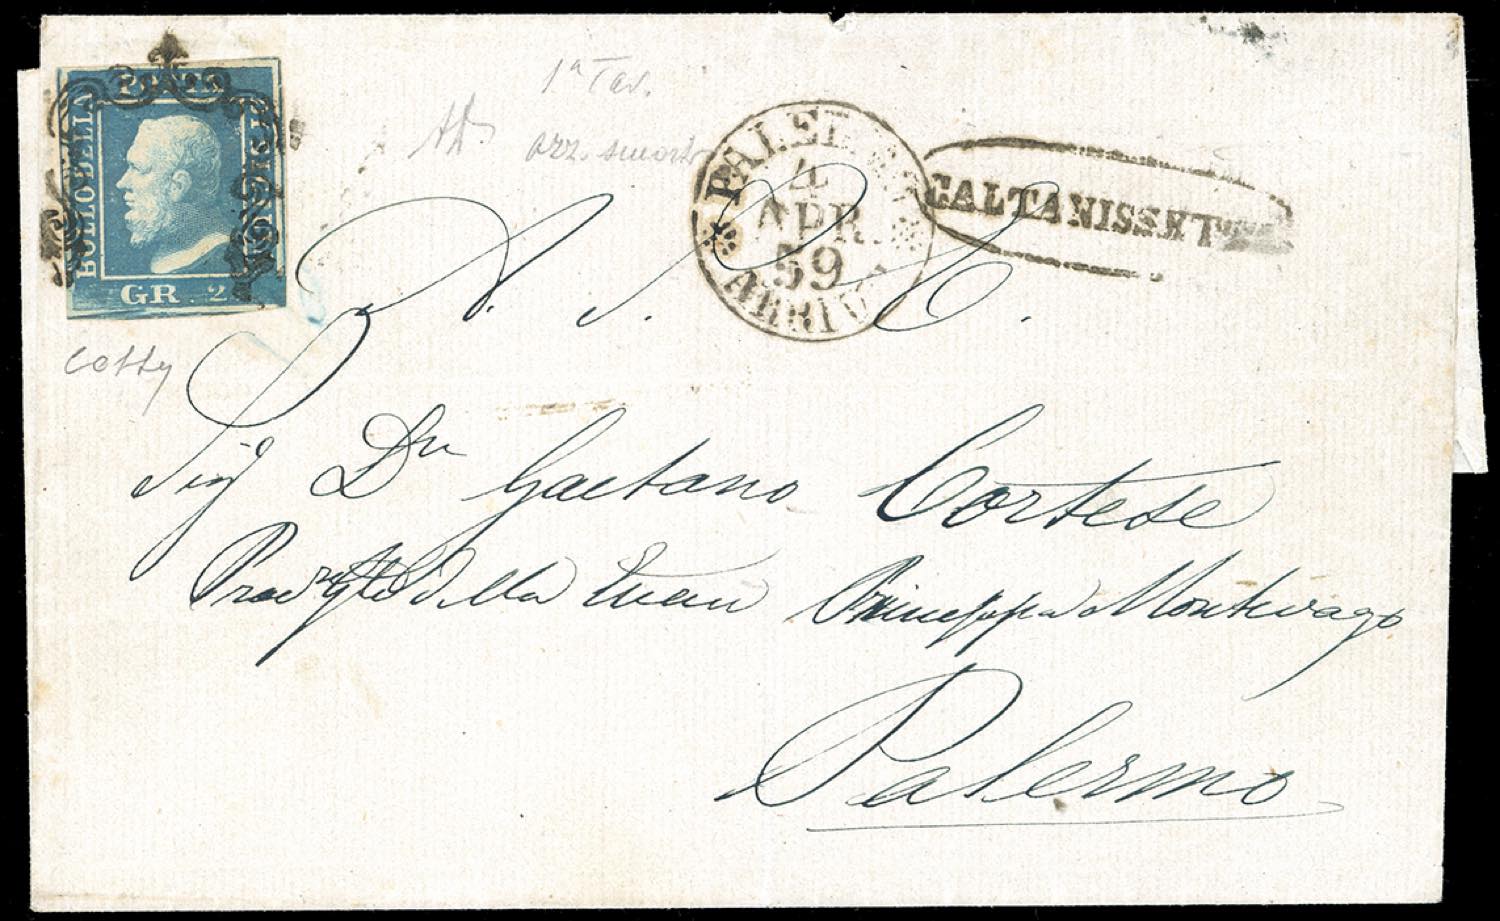 POSTA
BOLLO DELLA
DI SICILIA
GR. 2
1ª Tav.
azz. smorto
PALERMO
4
APR.
59
ARRIVO
CALTANISSETTA
A. S. E.
Cotty
Sig D.n Gaetano Cortese
della Principessa Montevago
Palermo